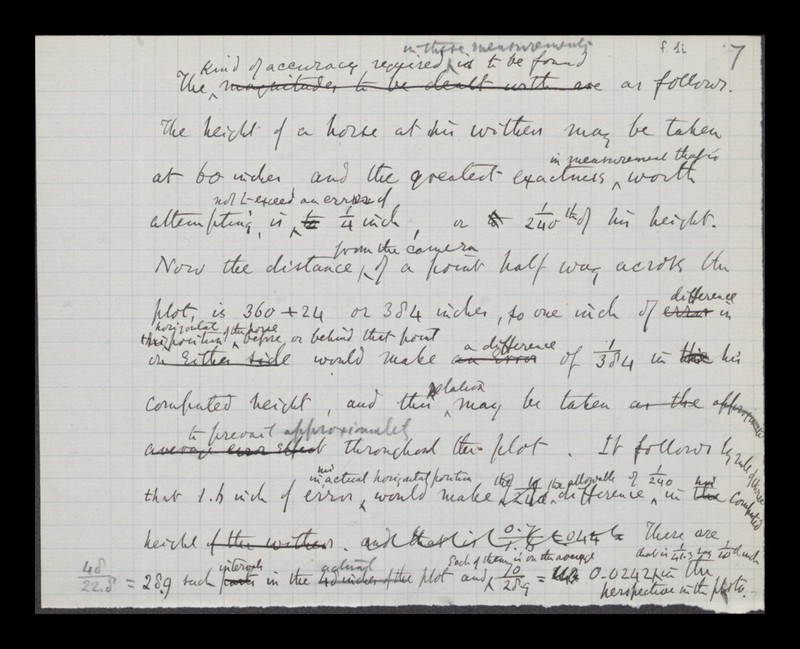 in these measurements
f. 11 7
kind of accuracy required, is to be found
The magnitudes to be dealt with are as follows.
The height of a horse at his withers may be taken
in measurement that is
at 60 inches and the greatest exactness, worth
not to exceed an error of
attempting, is to 1/4 inch, or 1/240th of his height.
from the camera
Now the distance, of a point half way across the
plot, is 360 + 24 or 384 inches, so one inch of error in
difference
horizontal of the horse
position before, or behind that point
on either side would make an error of 1/384 in his
a difference
relation
computed height, and this may be taken as the approximate
to prevail approximately
average error throughout the plot. It follows by rule of three
in actual horizontal position the allowable of 1/240 his
that 1.6 inch of error, would make difference, in the computed
height of the withers. and that is There are
that is
48/22.8 = 28.9 such parts in the 48 inches of the plot and 70/289 = 0.0242 in the
intervals actual Each of them is on the average
perspective in the photo.